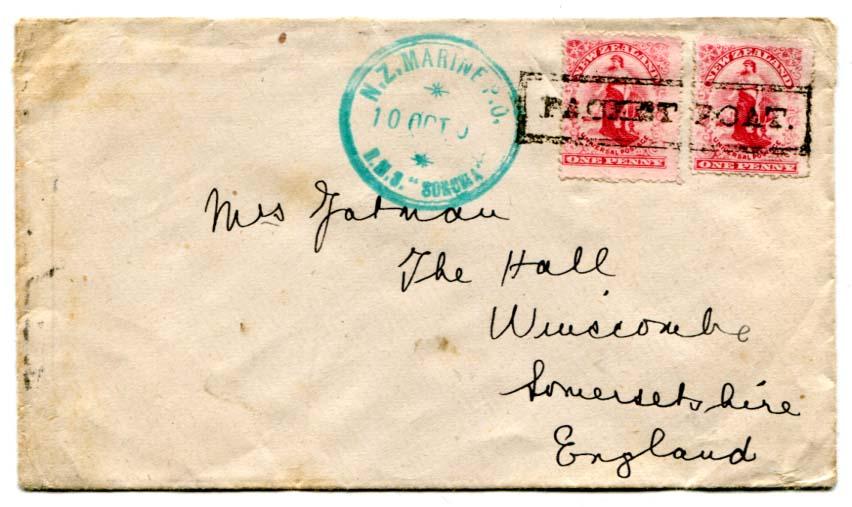 N.Z. MARINE P.O.
10 OCT
R.M.S. "SONOMA"
NEW ZEALAND
UNIVERSAL POSTAGE
ONE PENNY
NEW ZEALAND
UNIVERSAL POSTAGE
ONE PENNY
PACKET BOAT.
Mrs Gatman
The Hall
Winscombe
Somersetshire
England